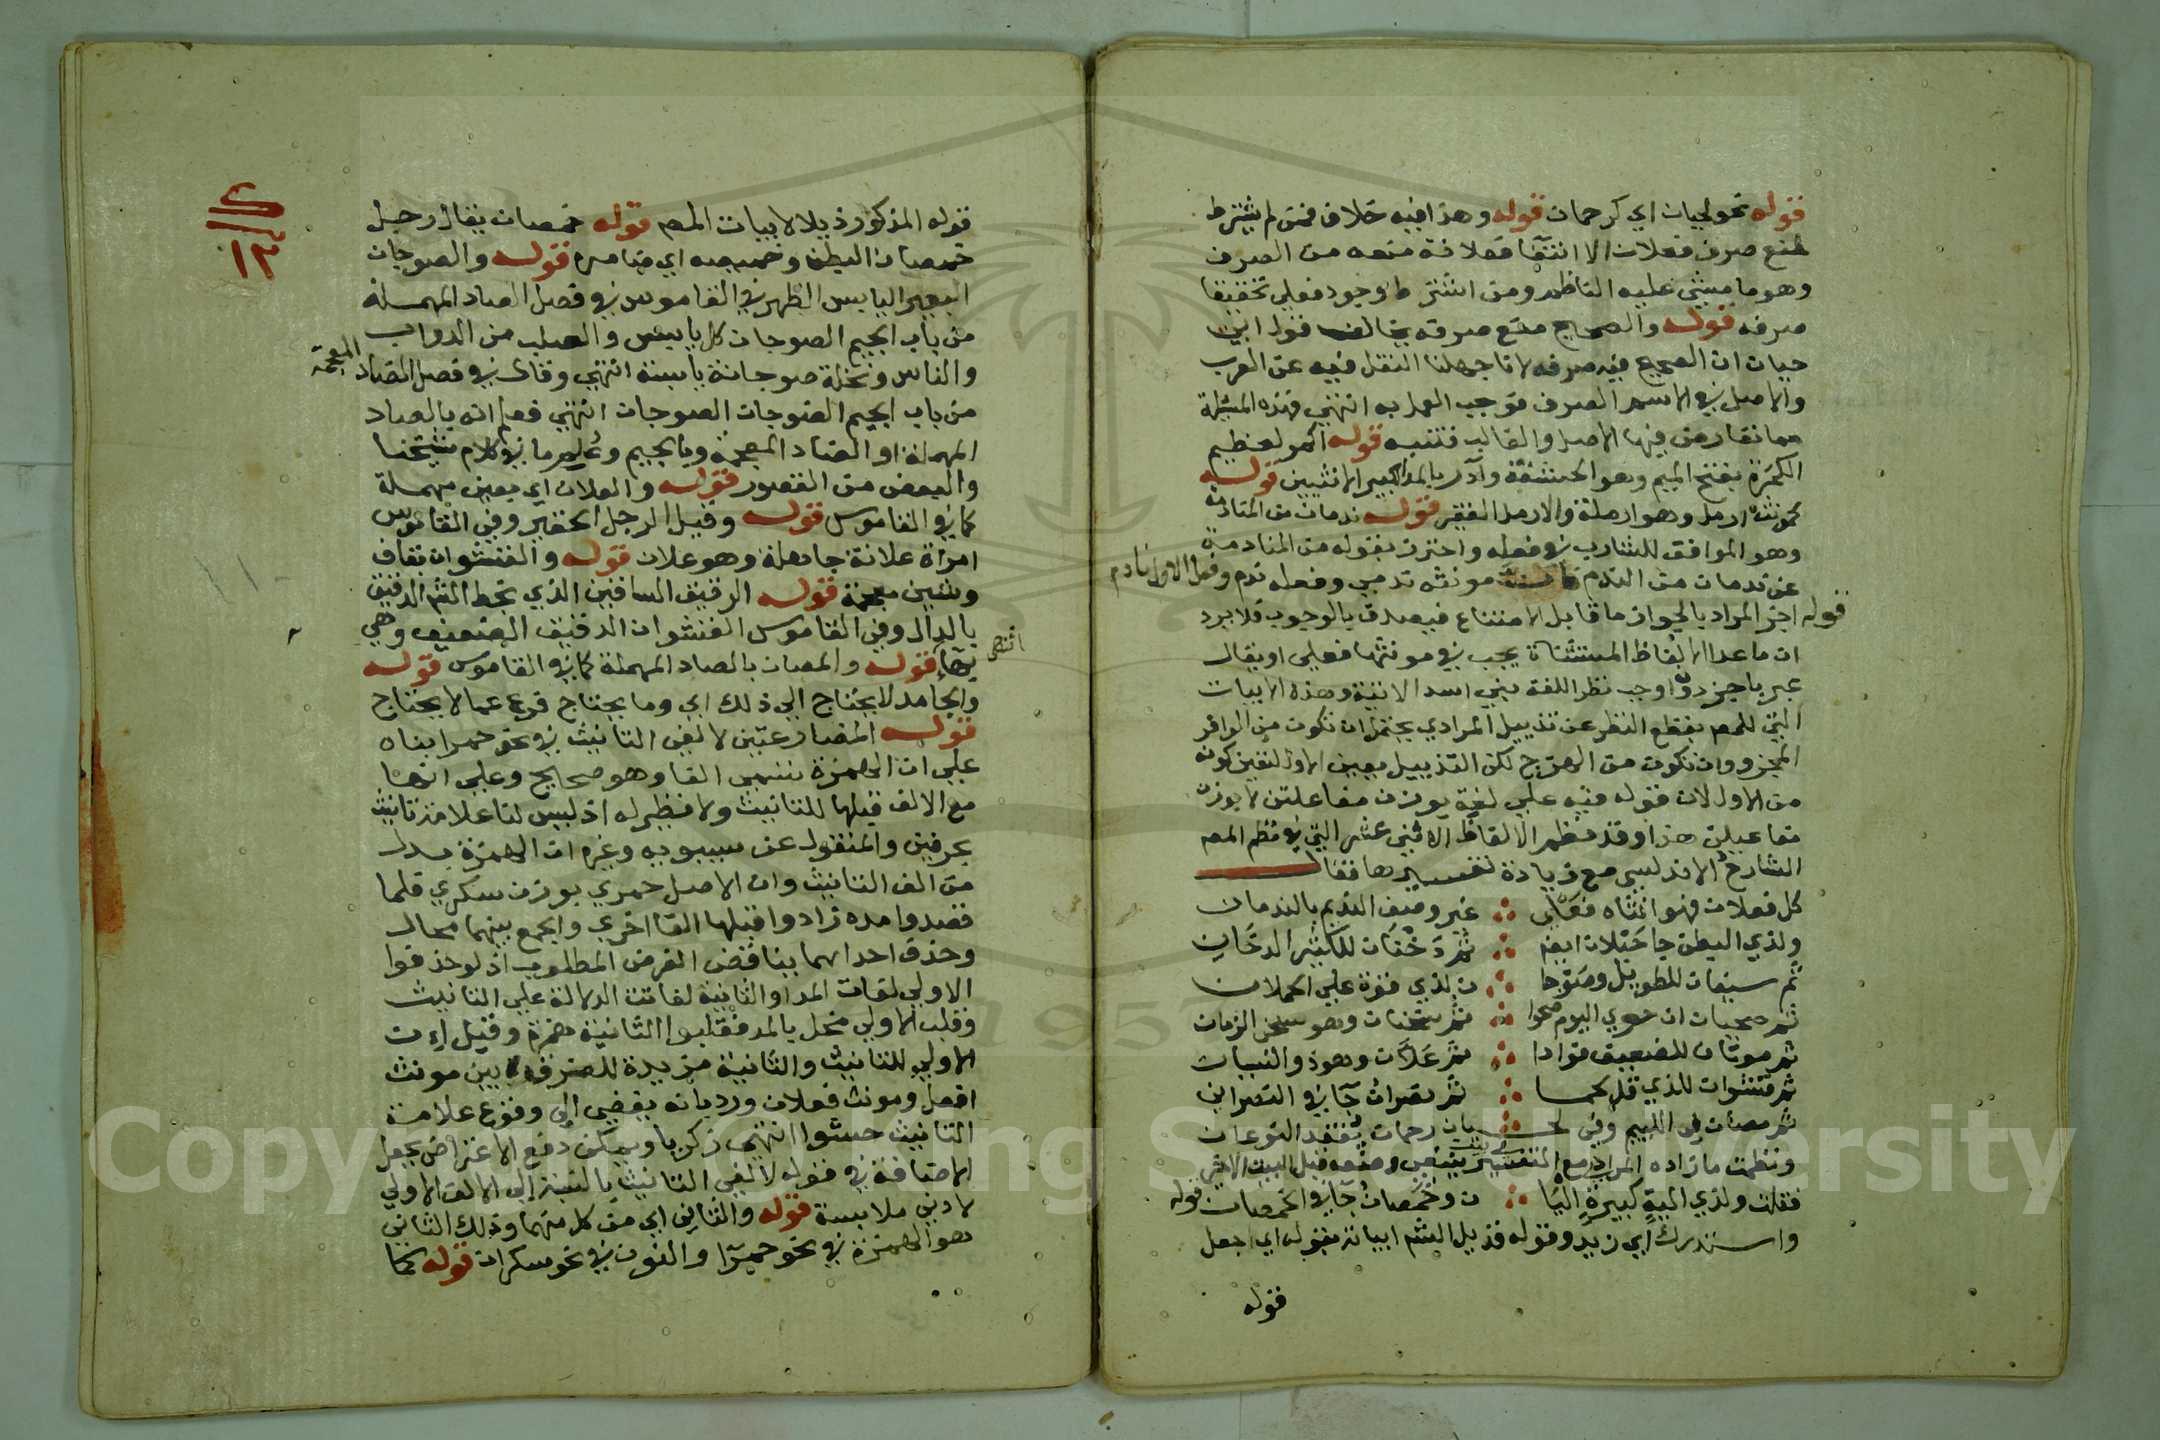 قوله نحو لحيان اي كرحمان قوله وهذا فيه خلاف فمن لم يشترط
لمنع صرف فعلان الا انتفا فعلانة منعه من الصرف
وهو ما مشي عليه الناظم ومن اشترط وجود فعلي تحقيقا
صرفه قوله والصحيح منع صرفه يخالف قول ابي
حيان ان الصحيح فيه صرفه لانا جهلنا النقل فيه عن العرب
والاصل في الاسم الصرف فوجب العمل به انتهي فهذه المسئلة
مما تعارض فيها الاصل والغالب فتنبه قوله اكمر لعظيم
الكمرة بفتح الميم وهو الحشفة وآدر بالمد لكبير الانثيين قوله
كمونث ارمل وهو ارملة والارمل الفقير قوله ندمان من المنادمة
وهو الموافق للشارب في فعله واحترز بقوله من المنادمة
عن ندمان من الندم مونثه ندمي وفعله ندم وفعل الاول نادم
قوله اجز المراد بالجواز ما قابل الامتناع فيصدق بالوجوب فلا يرد
ان ما عدا الالفاظ المستثناة يجب في مونثها فعلي او يقال
عبر باجز دون اوجب نظرا للغة بني اسد الاتية وهذه الابيات
التي للمص بقطع النظر عن تذييل المرادي يحتمل ان تكون من الوافر
المجزو وان تكون من الهزج لكن التذييل يعين الاول لتعين كونه
من الاول لان قوله فيه علي لغة بوزن مفاعلتن لا بوزن
مفاعيلن هذا وقد نظم الالفاظ الاثني عشر التي في نظم المص
الشارح الاندلسي مع زيادة تفسيرها فقال
كل فعلان فهو انثاه فعلي غير وصف النديم بالندمان
ولذي البطن جا حبلان ايضا ثم دخنان للكثير الدخان
ثم سيفان للطويل وصوجا ن لذي قوة علي الحملان
ثم صحيان ان حوي اليوم صحوا ثم سخنان وهو سخن الزمان
ثم موتان للضعيف فوادا ثم علان وهو ذو النسيان
ثم قشوان للذي قل لحما ثم نصران جا في النصراني
ثم مصان في اللئيم وفي لحيان رحمان يفقد النوعان
ونظمت ما زاده المرادي مع التفسير في بيت وضعه قبل البيت الاخير
فقلت ولذي الية كبيرة اليا ن وخمصان جا في الخمصان قوله
واستدرك اي زيد وقوله فذيل الشم ابياته بقوله اي اجعل
قوله
١٣
قوله المذكور ذيلا لابيات المص قوله خمصان يقال رجل
خمصان البطن وخميصه اي ضامره قوله والصوجان
البعير اليابس الظهر في القاموس في فصل الصاد المهملة
من باب الجيم الصوجان كل يابس والصلب من الدواب
والناس ونخلة صوجانة يابسة انتهي وقال في فصل الضاد المعجمة
من باب الجيم الضوجان الصوجان انتهي فعلم انه بالصاد
المهملة او الضاد المعجمة وبالجيم وعلم ما في كلام شيخنا
والبعض من القصور قوله والعلان اي بعين مهملة
كما في القاموس قوله وقيل الرجل الحقير وفي القاموس
امراة علانة جاهلة وهو علان قوله والقشوان بقاف
وشين معجمة قوله الرقيق الساقين الذي بخط الشم الدقيق
بالدال وفي القاموس القشوان الدقيق الضعيف وهي
بهاء انتهي قوله والمصان بالصاد المهملة كما في القاموس قوله
والجامد لا يحتاج الي ذلك اي وما يحتاج فرع عما لا يحتاج
قوله المضارعتين لالفي التانيث في نحو حمرا بناه
علي ان الهمزة تسمي الفا وهو صحيح وعلي انها
مع الالف قبلها للتانيث ولا نظير له اذ ليس لنا علامة تانيث
بحرفين والمنقول عن سيبويه وغيره ان الهمزة بدل
من الف التانيث وان الاصل حمري بوزن سكري فلما
قصدوا مده زادوا قبلها الفا اخري والجمع بينهما محال
وحذف احداهما يناقض الغرض المطلوب اذ لو حذفوا
الاولي لفات المد او الثانية لفاتت الدلالة علي التانيث
وقلب الاولي مخل بالمد فقلبوا الثانية همزة وقيل ان
الاولي للتانيث والثانية مزيدة للفرق بين مونث
افعل ومونث فعلان ورد بانه يفضي الي وقوع علامة
التانيث حشوا انتهي زكريا ويمكن دفع الاعتراض بجعل
الاضافة في قوله لالفي التانيث بالنسبة الي الالف الاولي
لادني ملابسة قوله والثاني اي من كل منهما وذلك الثاني
هو الهمزة في نحو حمرا والنون في نحو سكران قوله كما